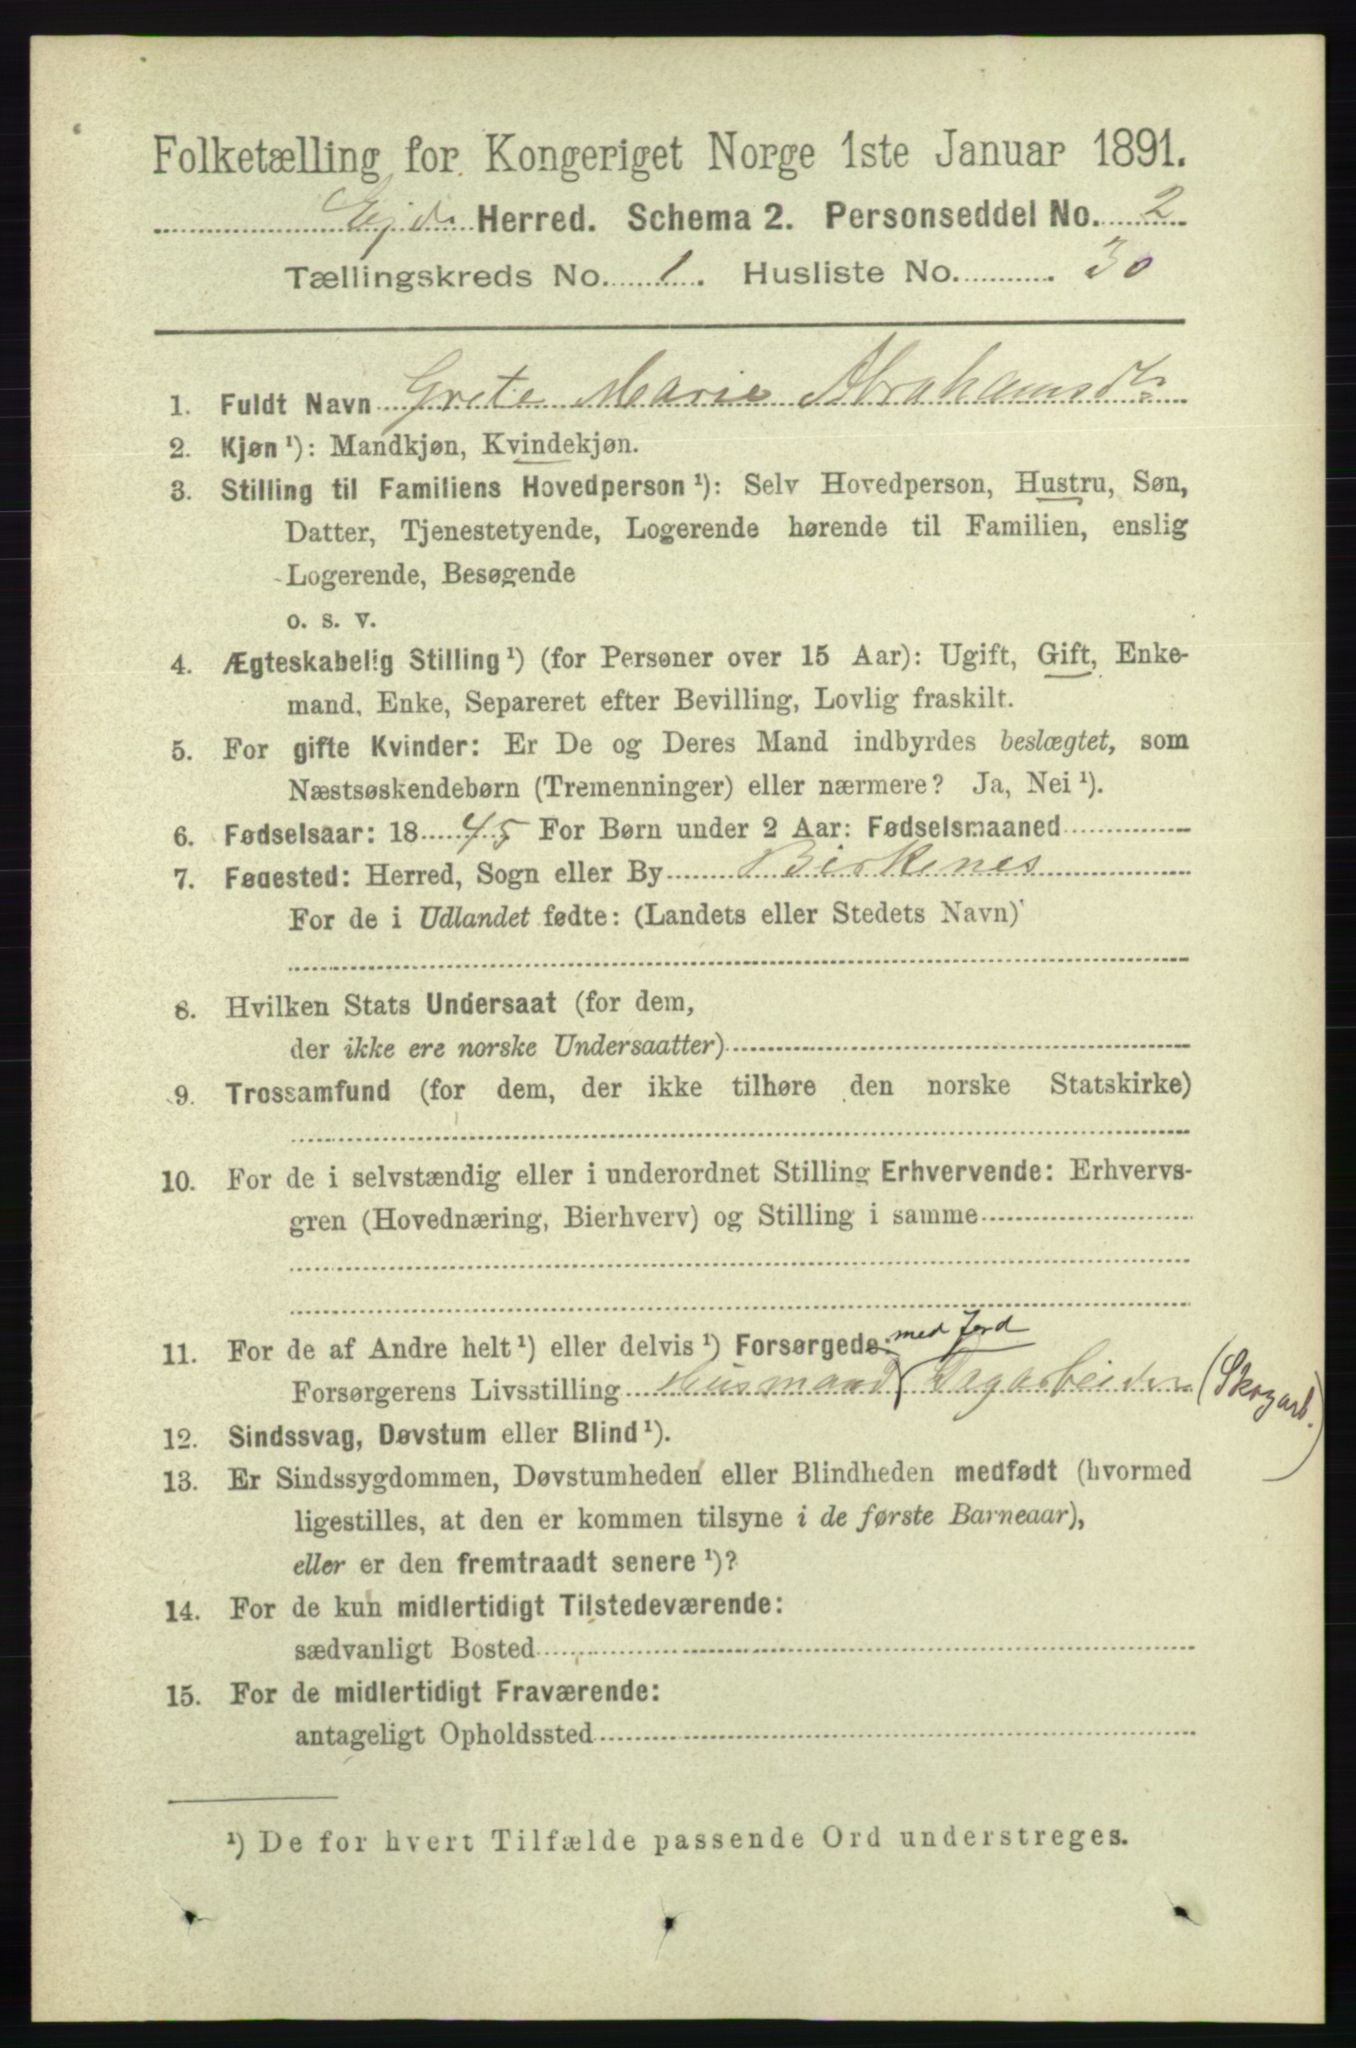 Folketælling for Kongeriget Norge 1ste Januar 1891.
Ejde Herred. Schema 2. Personseddel No. 2
Tællingskreds No. 1. Husliste No. 30
1. Fuldt Navn Grete Marie Abrahamsdtr
2. Kjøn ¹): Mandkjøn, Kvindekjøn.
3. Stilling til Familiens Hovedperson ¹): Selv Hovedperson, Hustru, Søn,
Datter, Tjenestetyende, Logerende hørende til Familien, enslig
Logerende, Besøgende
o. s. v.
4. Ægteskabelig Stilling ¹) (for Personer over 15 Aar): Ugift, Gift, Enke-
mand, Enke, Separeret efter Bevilling, Lovlig fraskilt.
5. For gifte Kvinder: Er De og Deres Mand indbyrdes beslægtet, som
Næstsøskendebørn (Tremenninger) eller nærmere? Ja, Nei ¹).
6. Fødselsaar: 1845 For Børn under 2 Aar: Fødselsmaaned
7. Fødested: Herred, Sogn eller By Birkenes
For de i Udlandet fødte: (Landets eller Stedets Navn)
8. Hvilken Stats Undersaat (for dem,
der ikke ere norske Undersaatter)
9. Trossamfund (for dem, der ikke tilhøre den norske Statskirke)
10. For de i selvstændig eller i underordnet Stilling Erhvervende: Erhvervs-
gren (Hovednæring, Bierhverv) og Stilling i samme
11. For de af Andre helt ¹) eller delvis ¹) Forsørgede: med Jord
Forsørgerens Livsstilling Husmand Dagarbeider (Skogarb.)
12. Sindssvag, Døvstum eller Blind ¹).
13. Er Sindssygdommen, Døvstumheden eller Blindheden medfødt (hvormed
ligestilles, at den er kommen tilsyne i de første Barneaar),
eller er den fremtraadt senere ¹)?
14. For de kun midlertidigt Tilstedeværende:
sædvanligt Bosted
15. For de midlertidigt Fraværende:
antageligt Opholdssted
¹) De for hvert Tilfælde passende Ord understreges.